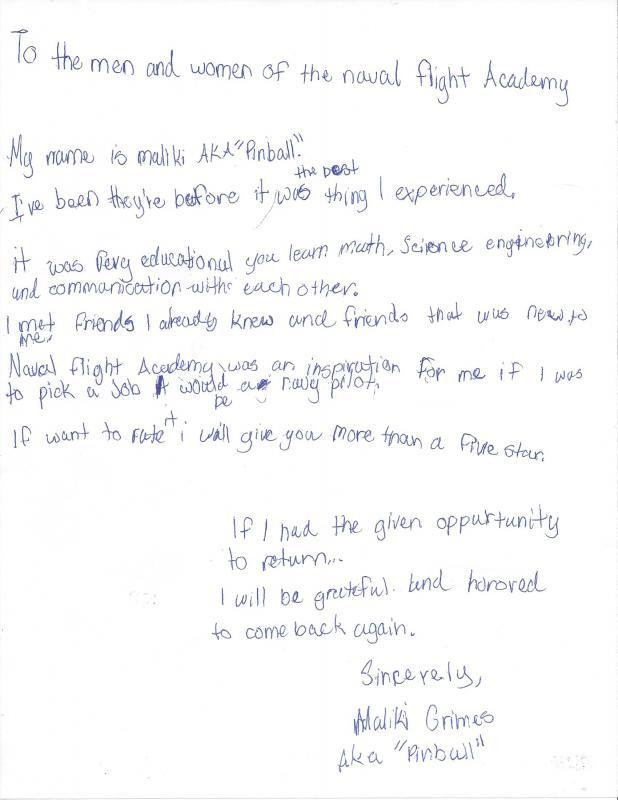 To the men and women of the naval flight Academy
My name is maliki AKA "Pinball."
I've been they're before it was the best thing I experienced.
it was very educational you learn math, science engineering,
and communication with each other.
I met friends I already knew and friends that was new to
me.
Naval flight Academy was an inspiration for me if I was
to pick a job it would be a navy pilot.
If want to rate it i will give you more than a five star.
If I had the given oppurtunity
to return...
I will be grateful and honored
to come back again.
Sincerely,
Maliki Grimes
Aka "Pinball"